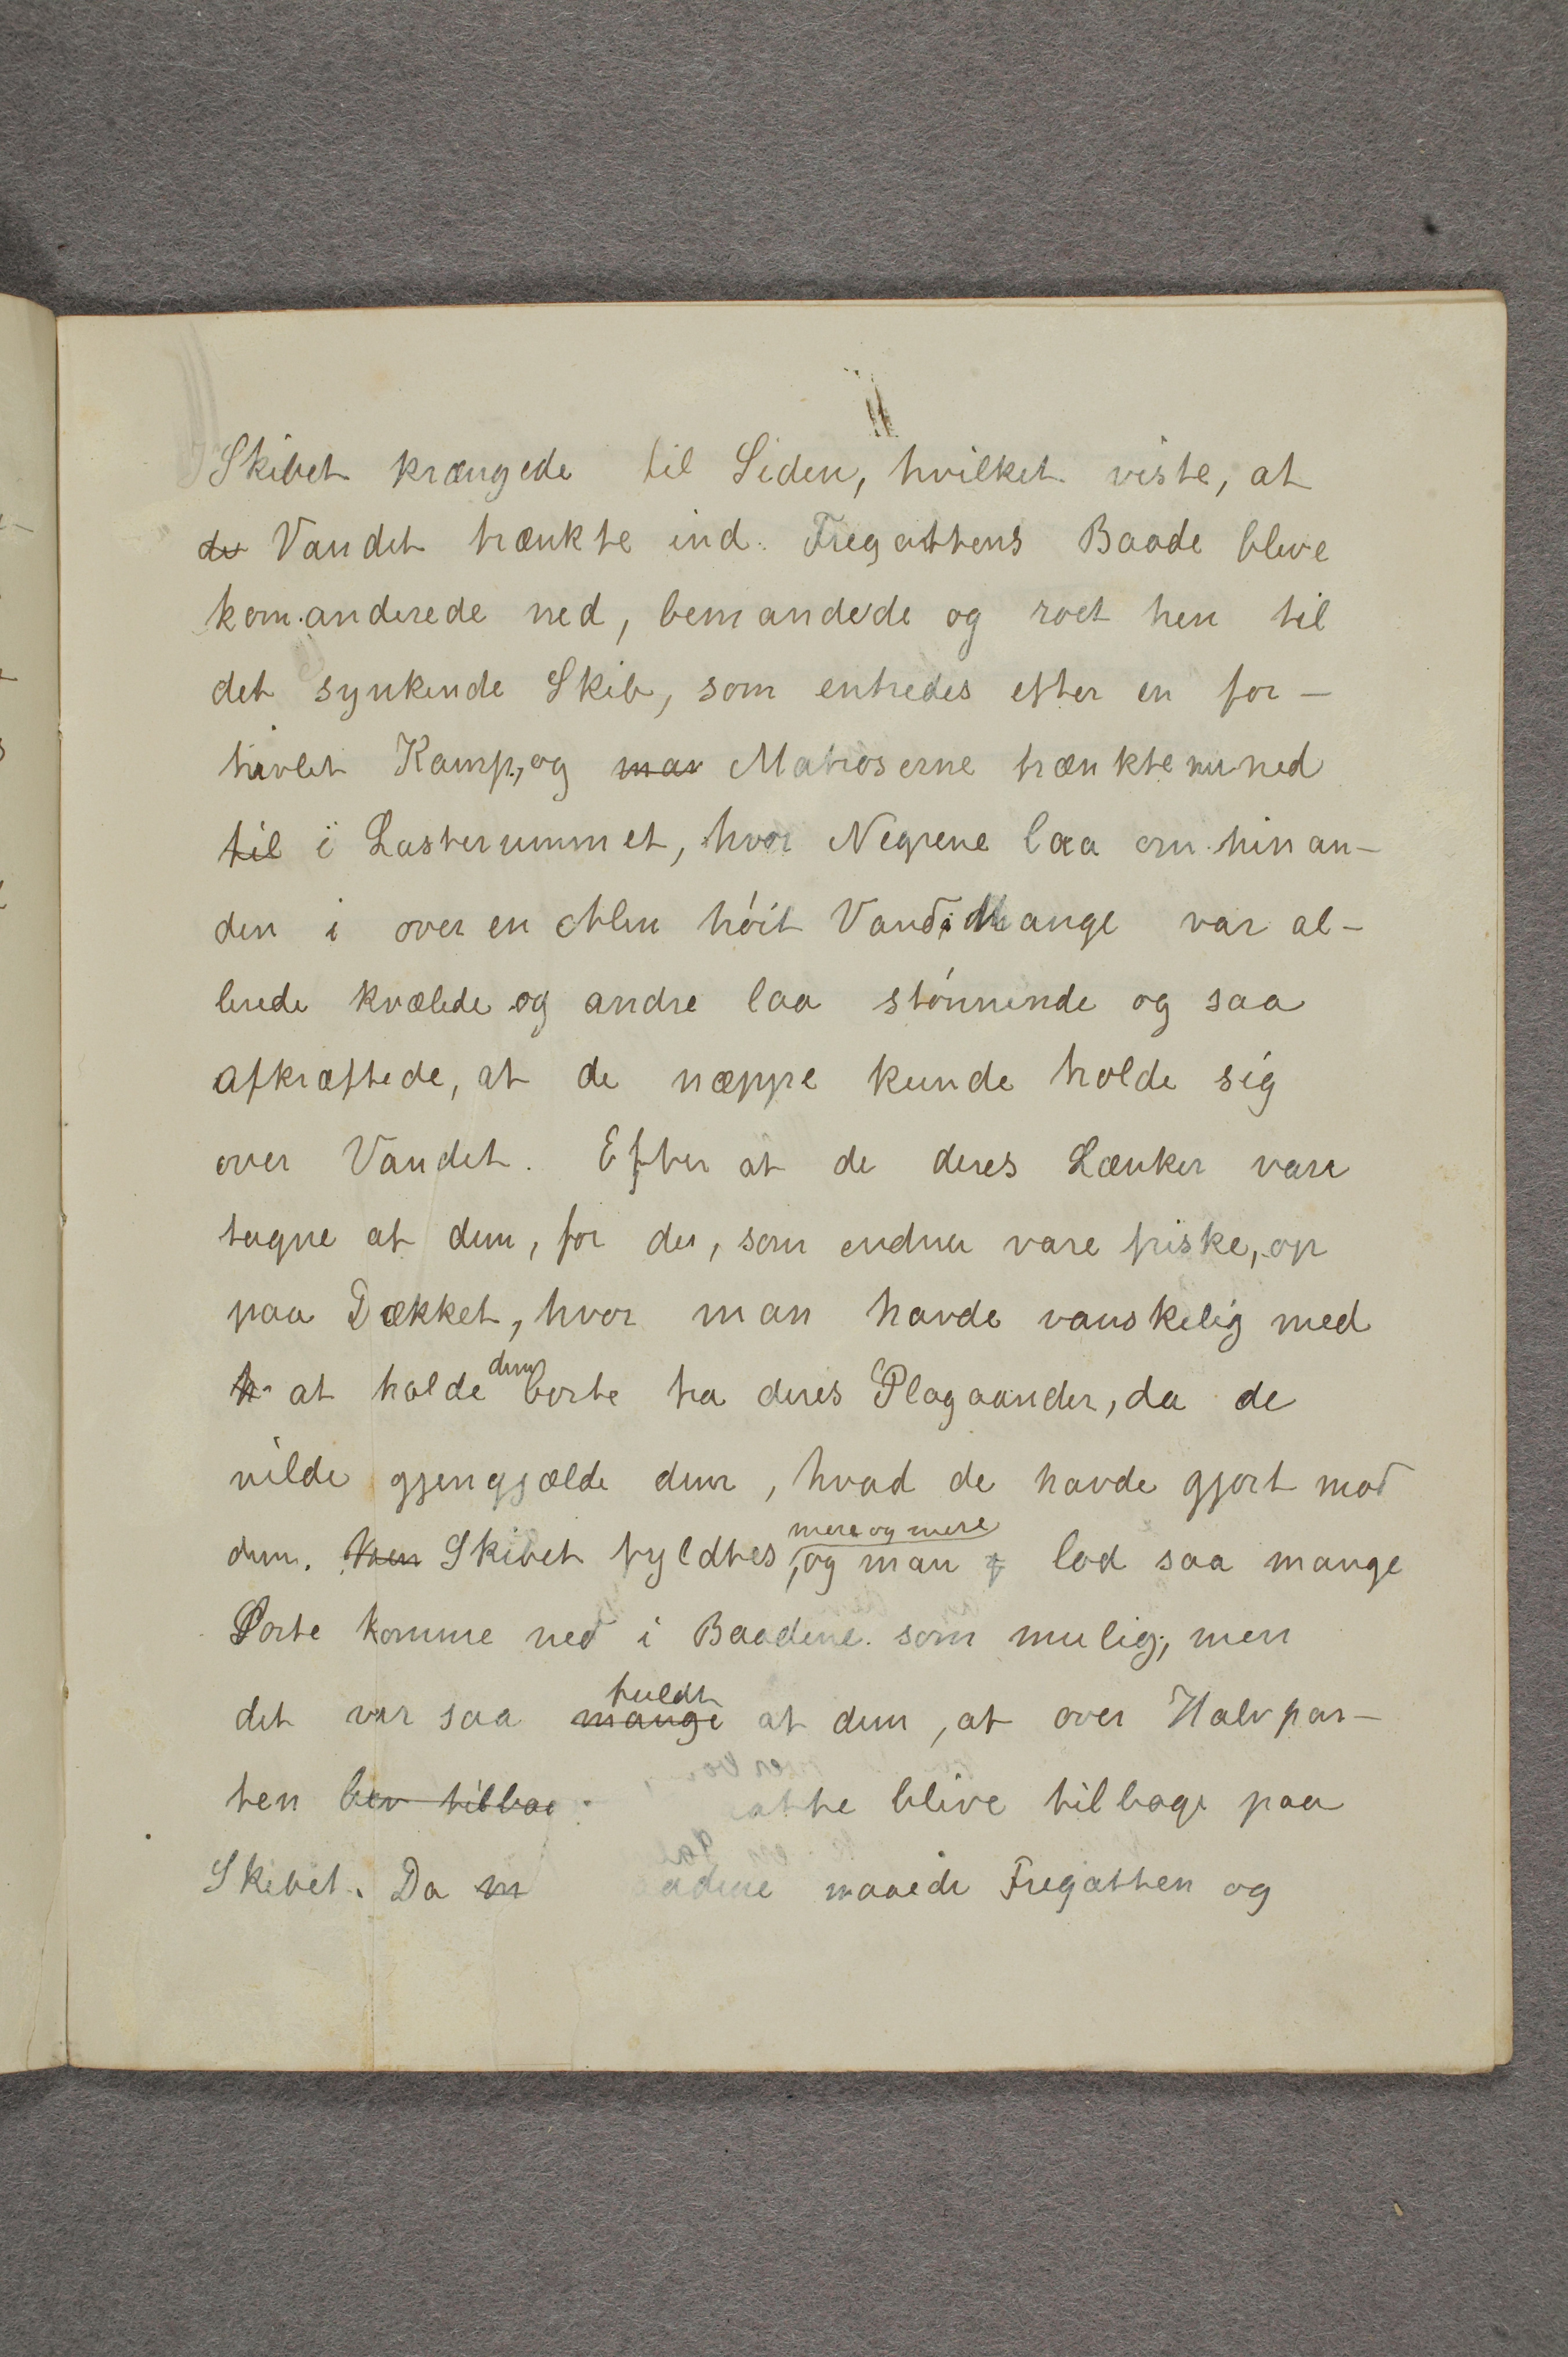 Skibet krængede til Siden, hvilket viste, at
de Vandet trænkte ind. Fregattens Baade bleve
komanderede ned, bemandede og roet hen til
det synkende Skib, som entredes efter en for-
tvivlet Kamp, og man Matroserne trænkte nu ned
til i Lasterummet, hvor Negrene laa om hinan-
den i over en Alen høit Vand. Mange var al-
lerede kvælede og andre laa stønnende og saa
afkræftede, at de næppe kunde holde sig
over Vandet. Efter at de deres Lænker vare
tagne af dem, for de, som endnu vare friske, op
paa Dækket, hvor man havde vanskelig med
h at holde dem borte fra deres Plagaander, da de
vilde gjengjælde dem, hvad de havde gjort mod
dem. Men Skibet fyldtes mere og mere, og man f lod saa mange
Sorte komme ned i Baadene som mulig; men
det var saa mange fuldt af dem, at over Halvpar-
ten blev tilbag atte blive tilbage paa
Skibet. Da m adene naaede Fregatten og